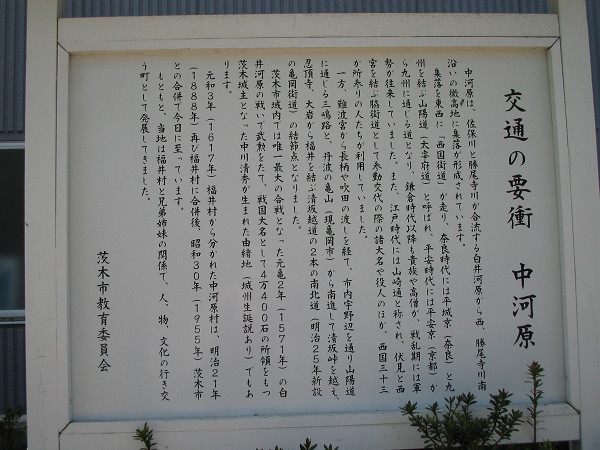 交通の要衝　中河原
中河原は、佐保川と勝尾寺川が合流する白井河原から西、勝尾寺川南
沿いの微高地に集落が形成されています。
集落を東西に「西国街道」が走り、奈良時代には平城京（奈良）と九
州を結ぶ山陽道（大宰府道）と呼ばれ、平安時代には平安京（京都）か
ら九州に通じる道となり、鎌倉時代以降も貴族や高僧が、戦乱期には軍
勢が往来していました。また、江戸時代には山崎通と称され、伏見と西
宮を結ぶ脇街道として参勤交代の際の諸大名や役人のほか、西国三十三
か所参りの人たちが利用していました。
一方、難波宮から長柄や吹田の渡しを経て、市内宇野辺を通り山陽道
に通じる三嶋路と、丹波の亀山（現亀岡市）から南進して清坂峠を越え、
忍頂寺、大岩から福井を結ぶ清坂越道の２本の南北道（明治２５年新設
の亀岡街道）の結節点となりました。
茨木市域内では唯一最大の合戦となった元亀２年（１５７１年）の白
井河原の戦いで武勲をたて、戦国大名として４万４００石の所領をもつ
茨木城主となった中川清秀が生まれた由緒地（城州生誕説あり）でもあ
ります。
元和３年（１６１７年）福井村から分かれた中河原村は、明治２１年
（１８８８年）再び福井村に合併後、昭和３０年（１９５５年）茨木市
との合併で今日に至っています。
もともと、当地は福井村と兄弟姉妹の関係で、人、物、文化の行き交
う町として発展してきました。
茨木市教育委員会